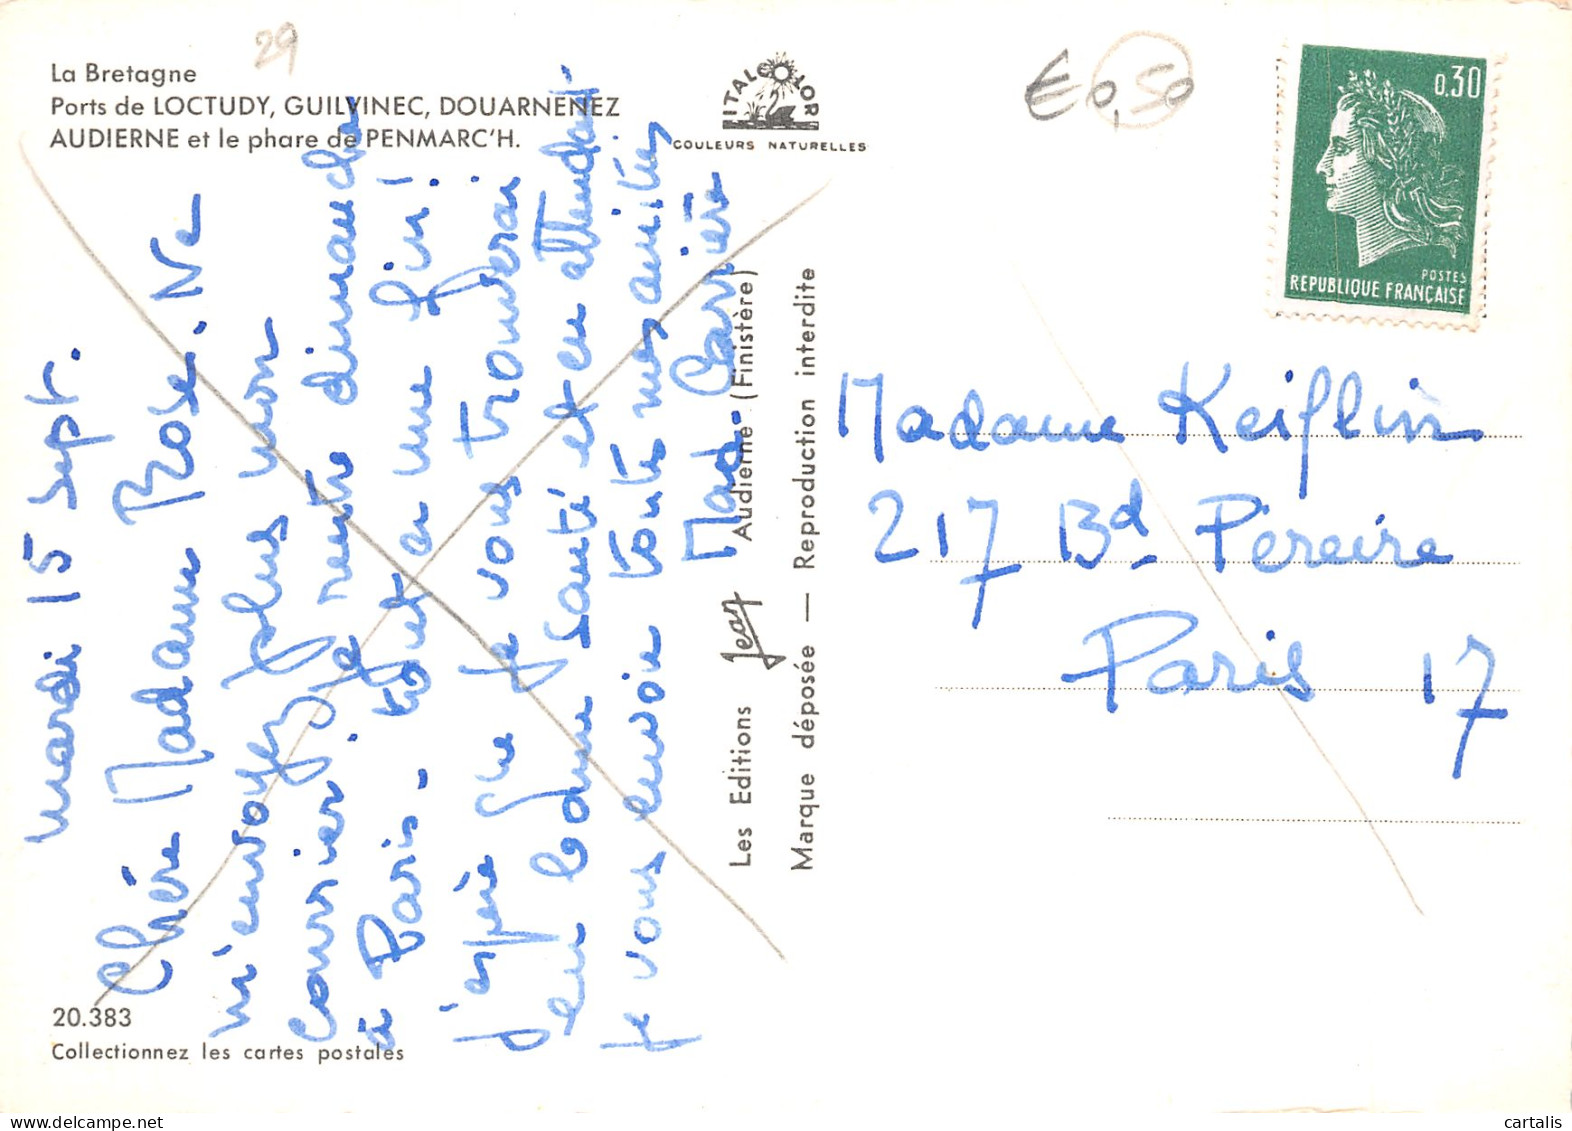 29
La Bretagne
Ports de LOCTUDY, GUILVINEC, DOUARNENEZ
AUDIERNE et le phare de PENMARC'H.
ITALCOLOR
COULEURS NATURELLES
€ 0,50
0.30
POSTES
REPUBLIQUE FRANÇAISE
mardi 15 sept.
Chère Madame Rose. Ne
m'envoyez plus mon
courrier. je rentre dimanche
à Paris - Tout a une fin!
J'espère que je vous trouverai
en bonne santé et en attendant
je vous envoie toutes mes amitiés
Mad. Carrière
Les Editions Jean Audierne (Finistère)
Marque déposée — Reproduction interdite
Madame Keiflin
217 Bd Pereire
Paris 17
20.383
Collectionnez les cartes postales
cartalis